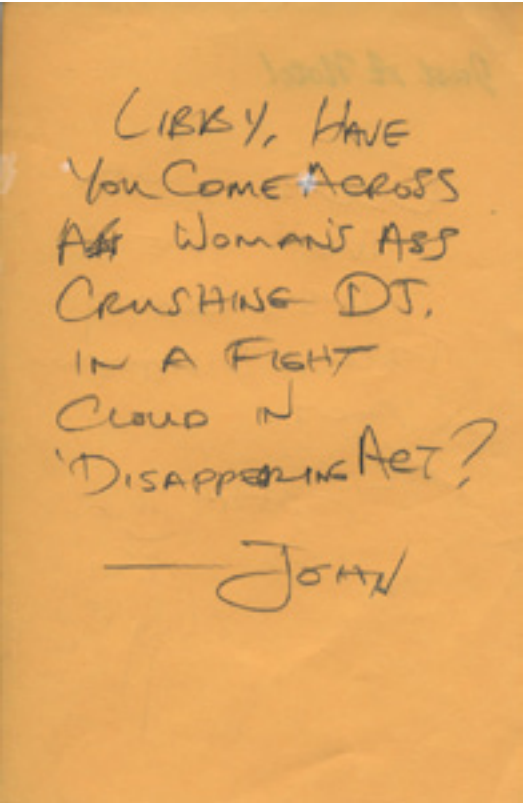 LIBBY, HAVE
YOU COME ACROSS
A WOMAN'S ASS
CRUSHING DJ.
IN A FIGHT
CLOUD IN
'DISAPPERING ACT?
—JOHN